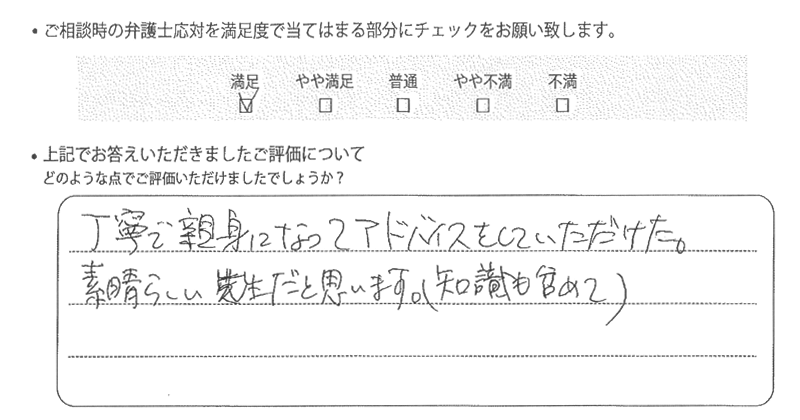 ・ご相談時の弁護士応対を満足度で当てはまる部分にチェックをお願い致します。
満足 やや満足 普通 やや不満 不満
☑ □ □ □ □
・上記でお答えいただきましたご評価について
どのような点でご評価いただけましたでしょうか？
丁寧で親身になってアドバイスをしていただけた。
素晴らしい先生だと思います。(知識も含めて)